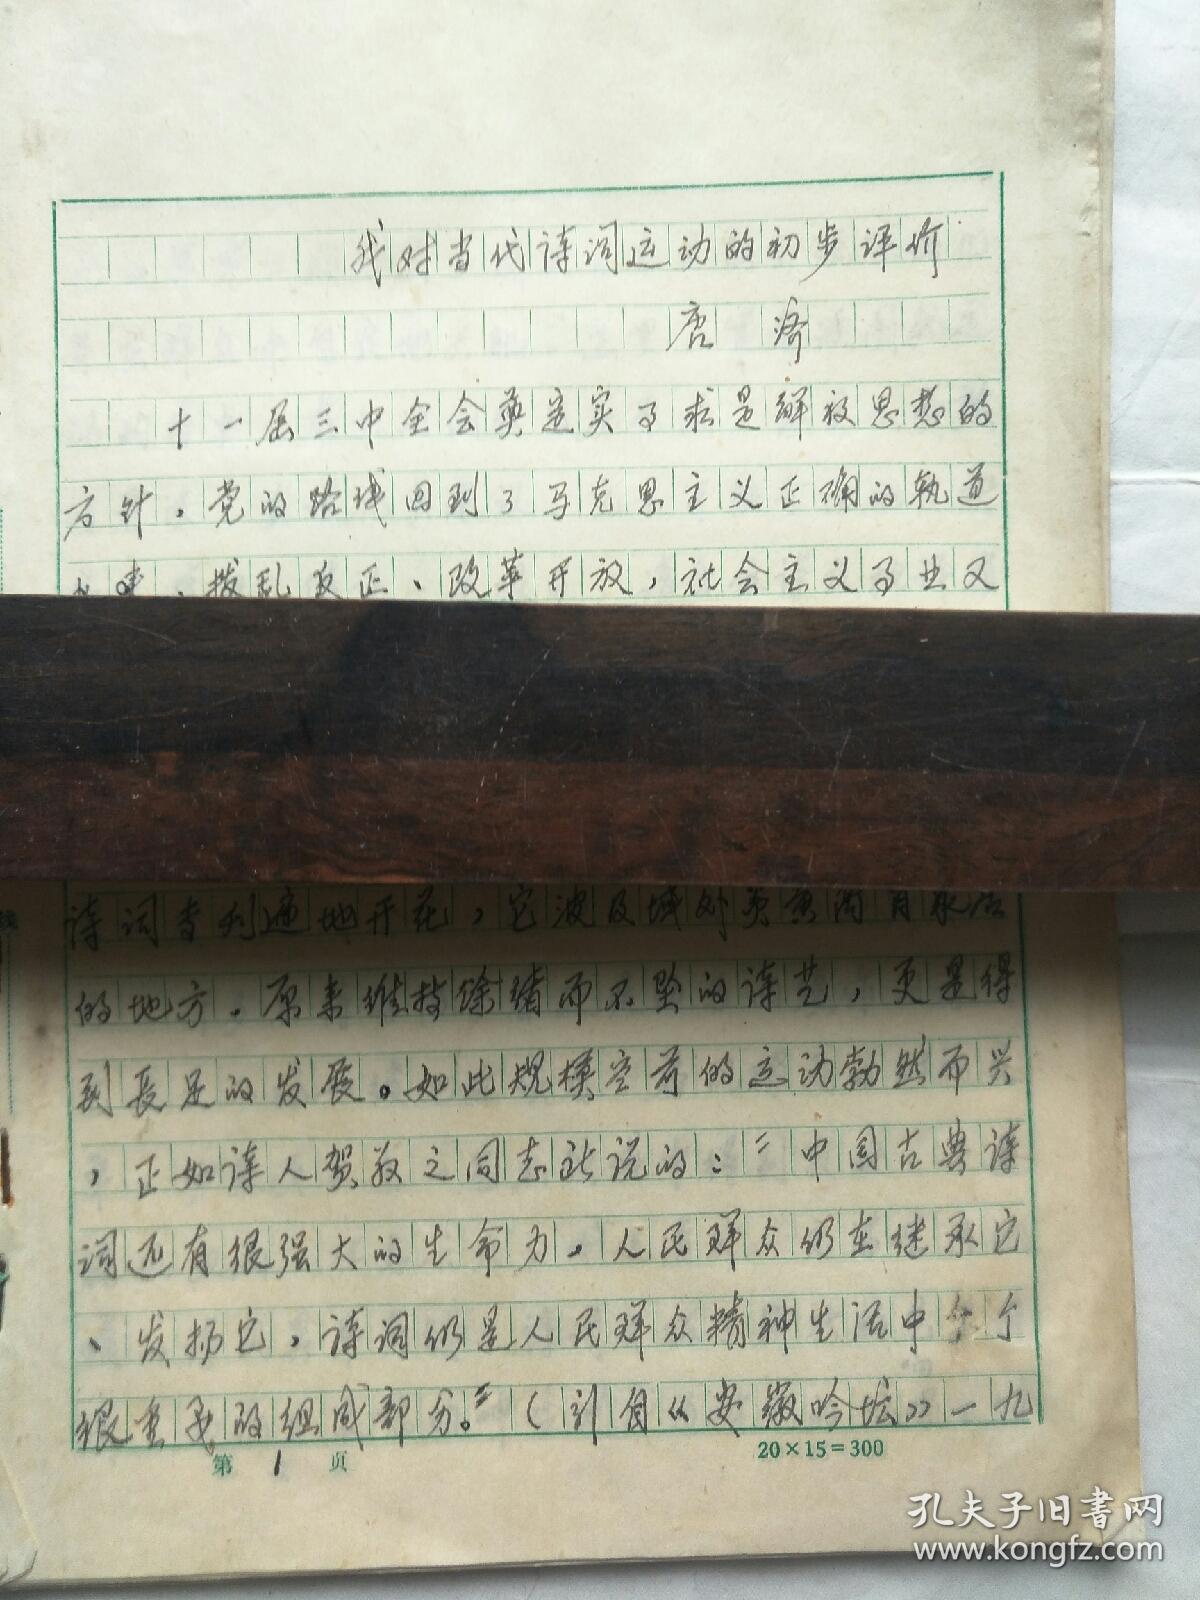 我对当代诗词运动的初步评价
唐
十一届三中全会奠定实事求是解放思想的
方针，党的路线回到了马克思主义正确的轨道
上来，拨乱反正、改革开放，社会主义事业又
诗词专刊遍地开花，它波及域外炎黄裔胄聚居
的地方。原来维持余绪而不坠的诗艺，更是得
到長足的发展。如此规模空前的运动勃然而兴
，正如诗人贺敬之同志所说的：“中国古典诗
词还有很强大的生命力，人民群众仍在继承它
、发扬它，诗词仍是人民群众精神生活中一个
很重要的组成部分。”（引自《安徽吟坛》一九
第 1 页
20×15=300
孔夫子旧書网
www.kongfz.com